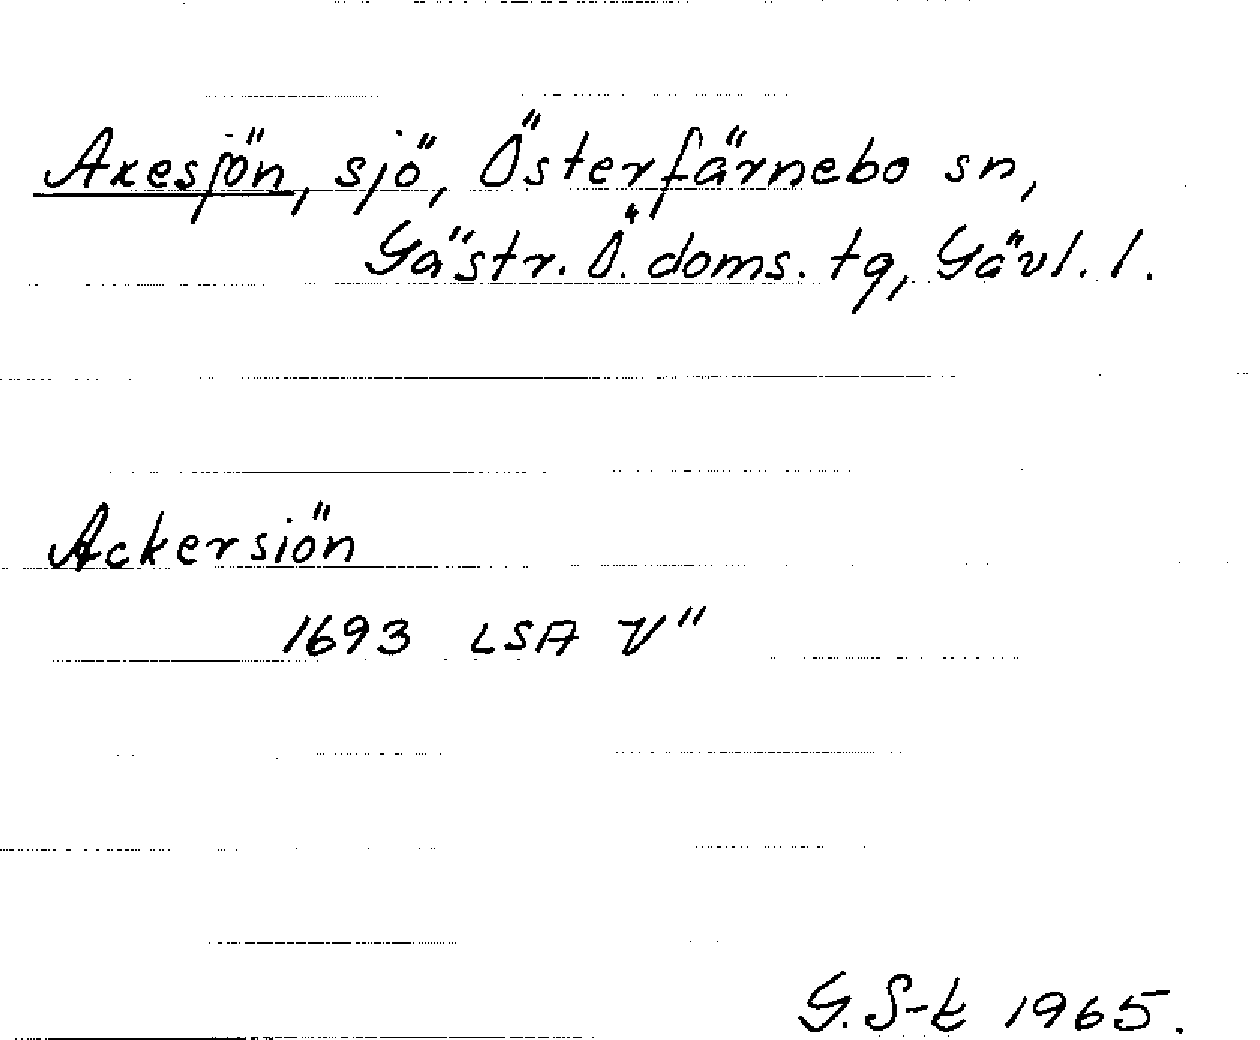 Axesjön, sjö, Österfärnebo sn,
Gästr. Ö. doms. tg, Gävl. l.
Ackersiön
1693 LSA V"
G. S-t 1965.